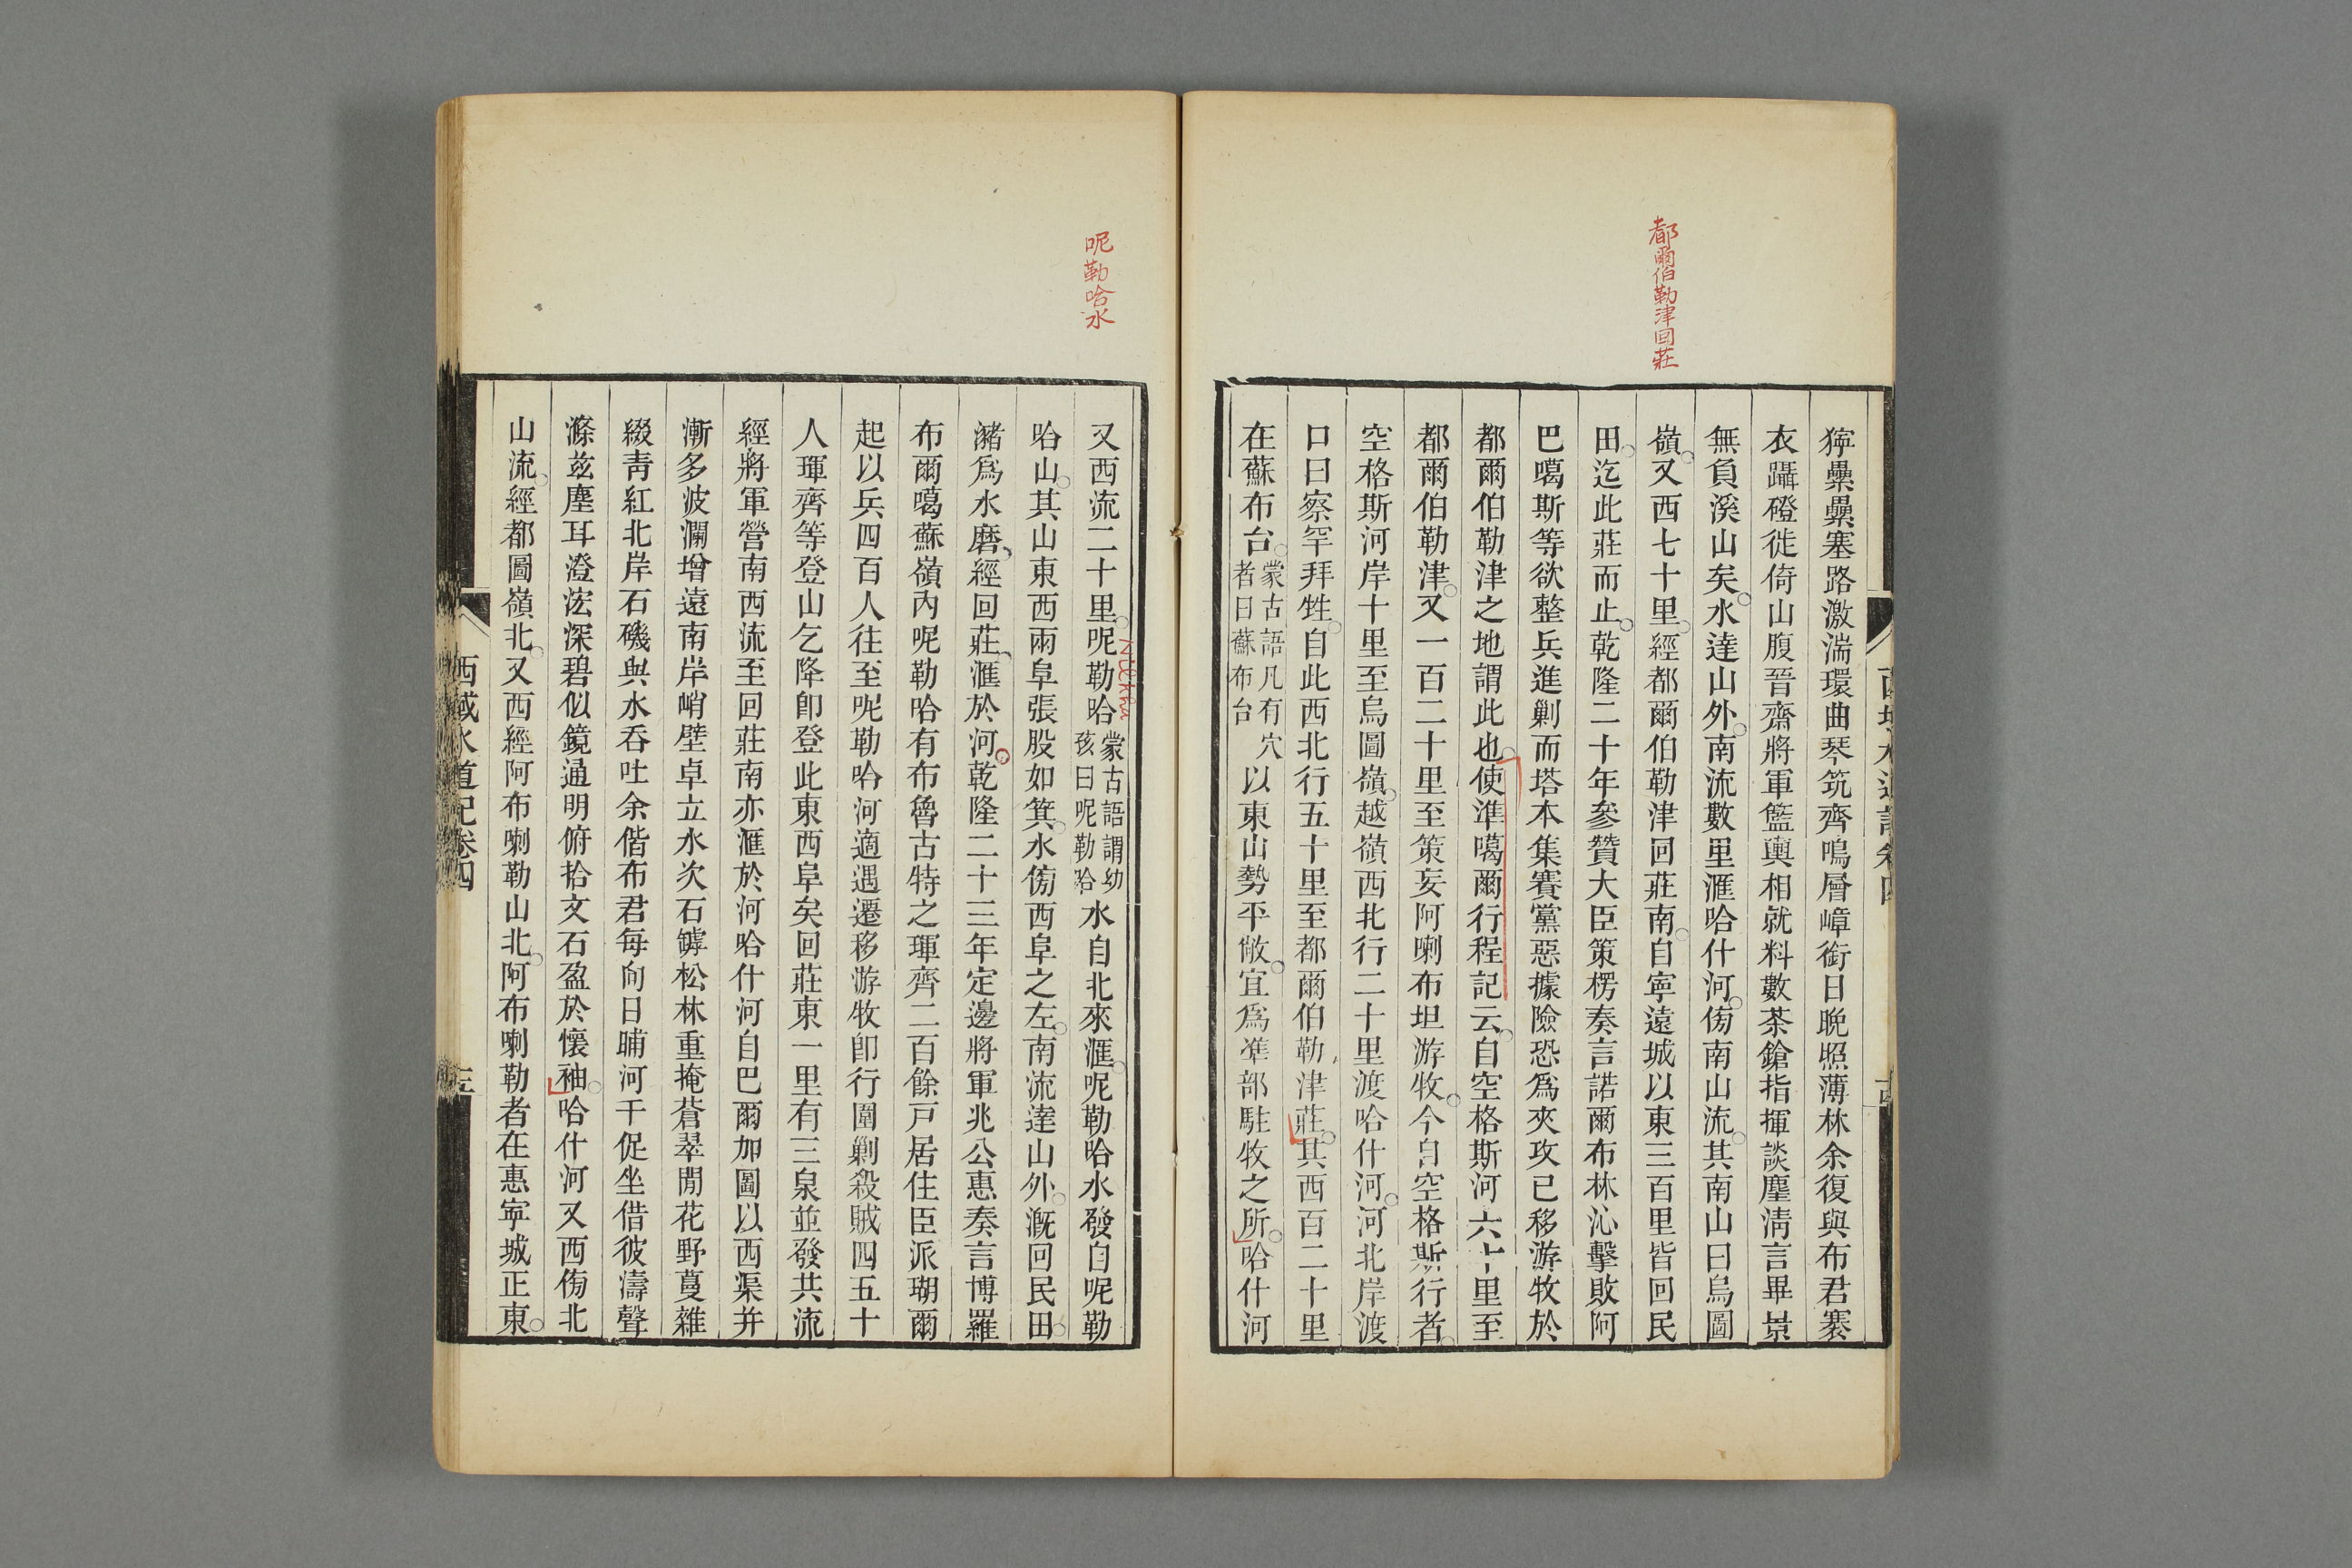 都爾伯勒津回莊
獰纍纍塞路激湍環曲琴筑齊鳴層嶂銜日晚照薄林余復與布君褰
衣躡磴徙倚山腹晉齋將軍籃輿相就料數茶鎗指揮談麈清言畢景
無負溪山矣水達山外南流數里滙哈什河傍南山流其南山曰烏圖
嶺又西七十里經都爾伯勒津回莊南自寧遠城以東三百里皆回民
田迄此莊而止乾隆二十年參贊大臣策楞奏言諾爾布林沁擊敗阿
巴噶斯等欲整兵進剿而塔本集賽黨惡據險恐爲夾攻已移游牧於
都爾伯勒津之地謂此也使準噶爾行程記云自空格斯河六十里至
都爾伯勒津又一百二十里至策妄阿喇布坦游牧今自空格斯行者
空格斯河岸十里至烏圖嶺越嶺西北行二十里渡哈什河河北岸渡
口曰察罕拜甡自此西北行五十里至都爾伯勒津莊其西百二十里
在蘇布台蒙古語凡有穴者曰蘇布台以東山勢平敞宜爲準部駐牧之所哈什河
西域水道記卷四
呢勒哈水
又西流二十里呢勒哈蒙古語謂幼孩曰呢勒哈水自北來滙呢勒哈水發自呢勒
哈山其山東西兩阜張股如箕水傍西阜之左南流達山外溉回民田
瀦爲水磨經回莊滙於河乾隆二十三年定邊將軍兆公惠奏言博羅
布爾噶蘇嶺內呢勒哈有布魯古特之琿齊二百餘戸居住臣派瑚爾
起以兵四百人往至呢勒哈河適遇遷移游牧卽行圍剿殺賊四五十
人琿齊等登山乞降卽登此東西阜矣回莊東一里有三泉並發共流
經將軍營南西流至回莊南亦滙於河哈什河自巴爾加圖以西渠并
漸多波瀾增遠南岸峭壁卓立水次石罅松林重掩蒼翠閒花野蔓雜
綴靑紅北岸石磯與水吞吐余偕布君每向日晡河干促坐借彼濤聲
滌茲塵耳澄泓深碧似鏡通明俯拾文石盈於懷袖哈什河又西傍北
山流經都圖嶺北又西經阿布喇勒山北阿布喇勒者在惠寧城正東
西域水道記卷四